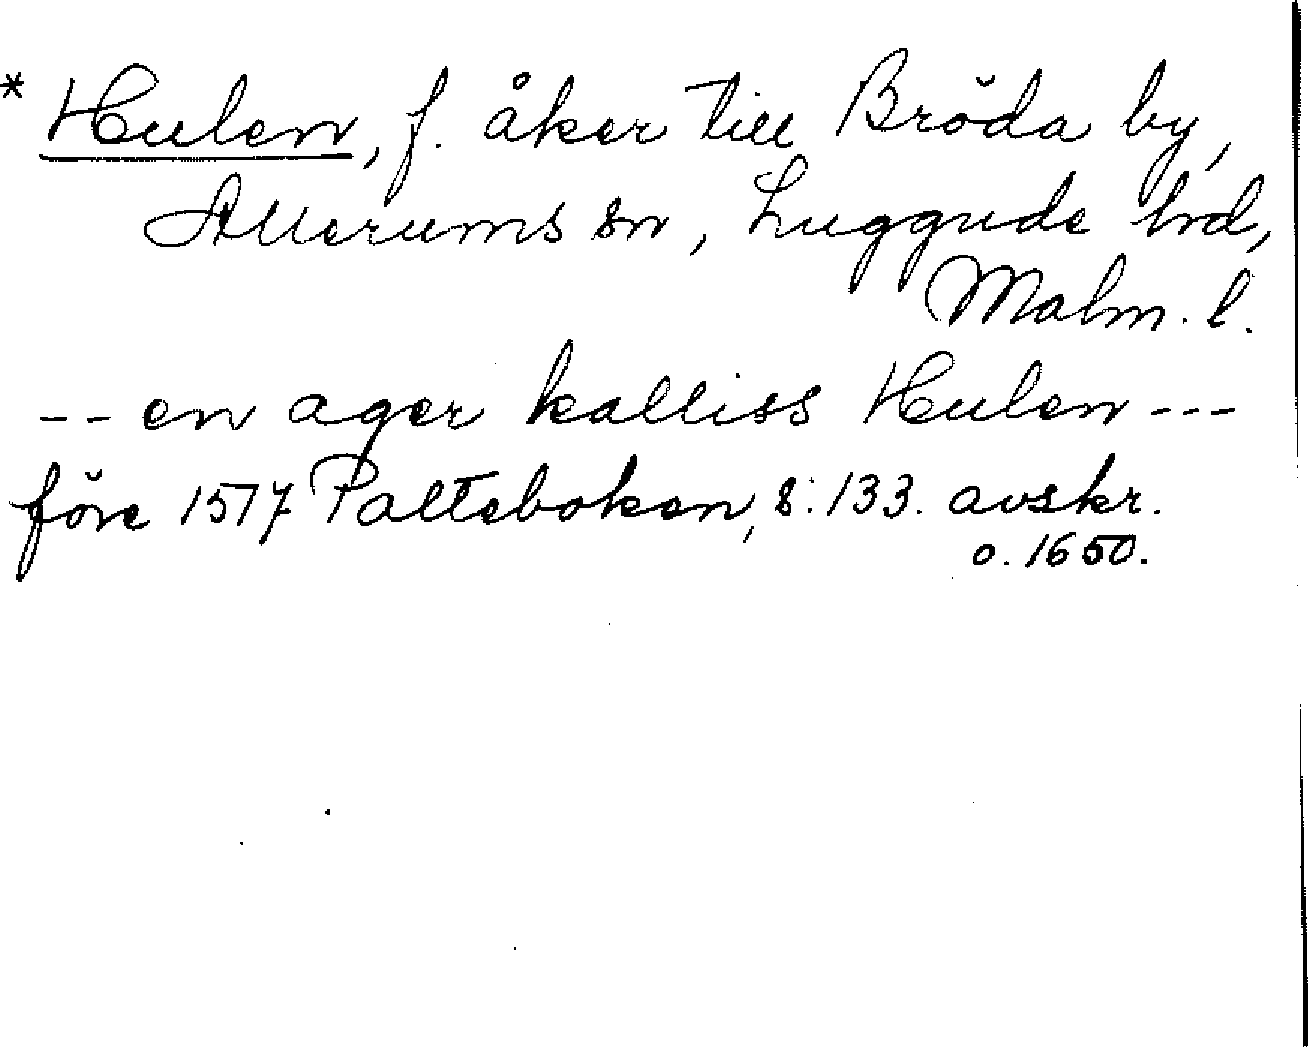 * Hulen, f. åker till Bröda by,
Allerums sn, Luggude hrd,
Malm. l.
-- en ager kalliss Hulen ---
före 1577 Palteboken, s: 133. avskr.
o. 1650.